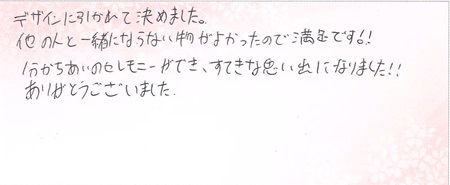 デザインに引かれて決めました。
他の人と一緒にならない物がよかったので満足です!!
分かちあいのセレモニーができ、すてきな思い出になりました!!
ありがとうございました.